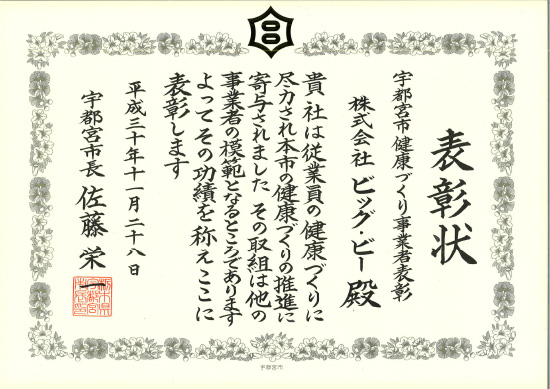 表彰状
宇都宮市健康づくり事業者表彰
株式会社 ビッグ・ビー 殿
貴社は従業員の健康づくりに
尽力され本市の健康づくりの推進に
寄与されました その取組は他の
事業者の模範となるところであります
よってその功績を称えここに
表彰します
平成三十年十一月二十八日
宇都宮市長 佐藤栄一
宇都宮市